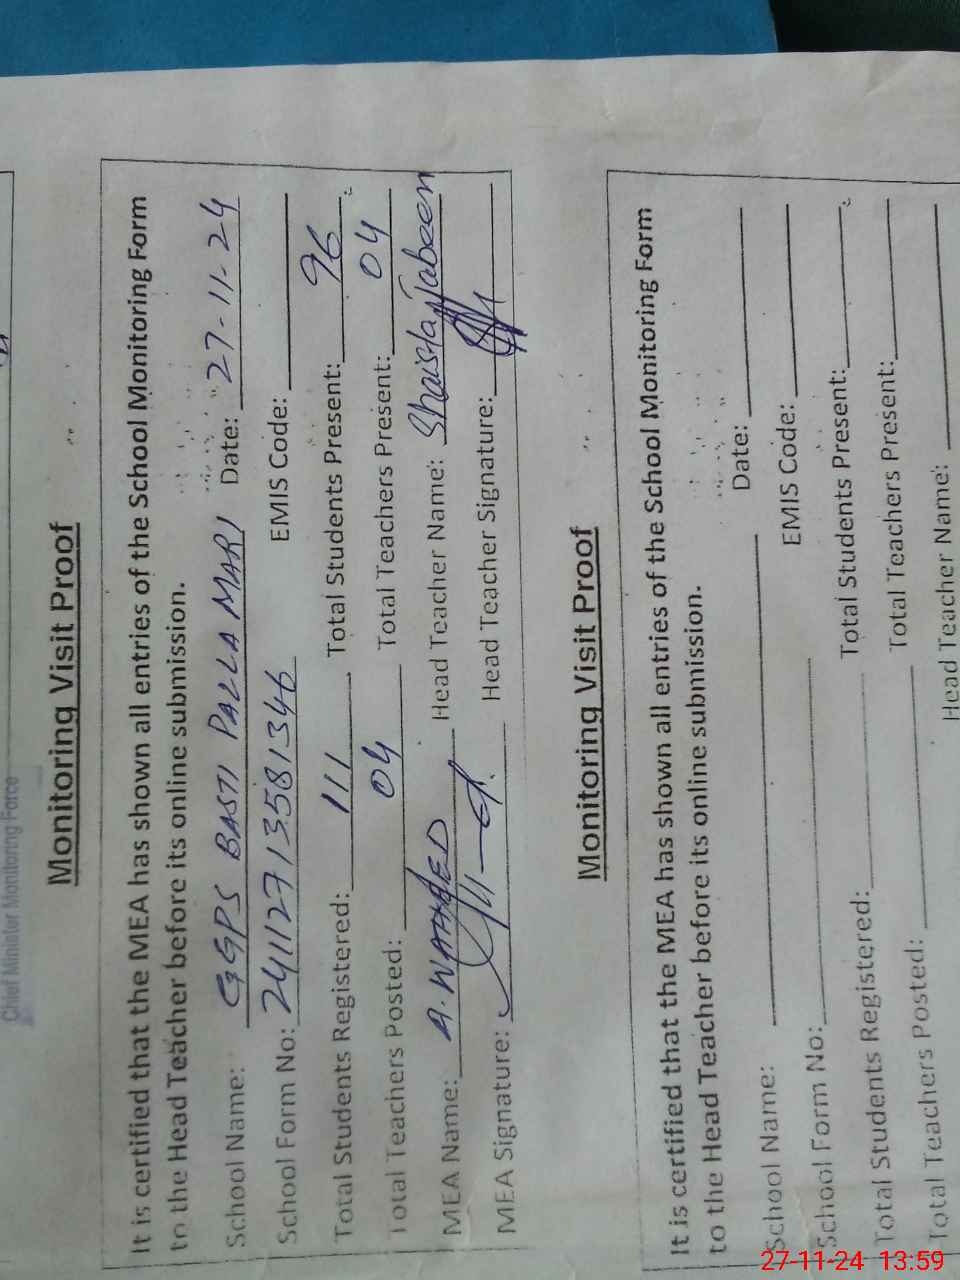 Chief Minister Monitoring Force
Monitoring Visit Proof
It is certified that the MEA has shown all entries of the School Monitoring Form
to the Head Teacher before its online submission.
School Name: GGPS BASTI PALLA MARI Date: 27-11-24
School Form No: 241127135581346 EMIS Code:
Total Students Registered: 111 Total Students Present: 96
Total Teachers Posted: 04 Total Teachers Present: 04
MEA Name: A. WAHEED Head Teacher Name: Shaista Jabeen
MEA Signature: Head Teacher Signature:
Monitoring Visit Proof
It is certified that the MEA has shown all entries of the School Monitoring Form
to the Head Teacher before its online submission.
School Name: Date:
School Form No: EMIS Code:
Total Students Registered: Total Students Present:
Total Teachers Posted: Total Teachers Present:
Head Teacher Name:
27-11-24 13:59